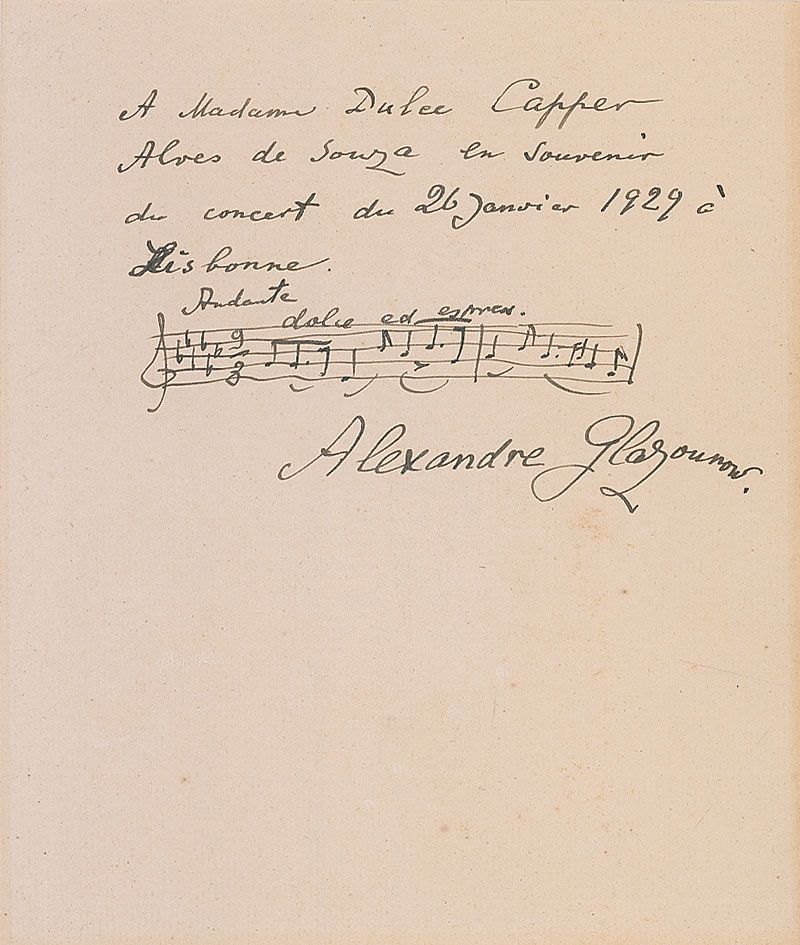 A Madame Dulce Capper
Alves de Souza en souvenir
du concert du 26 Janvier 1929 à
Lisbonne.
Andante
dolce ed espress.
9
8
Alexandre Glazounow.